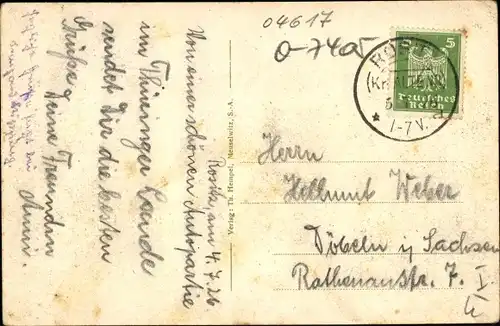 04617
0-7405
5
Deutsches
Reich
* 1-7V.
Rositz, am 4.7.26.
Von einer schönen Autopartie
im Thüringer Lande
sendet Dir die besten
Grüße
Deine Freundin
Anni.
Verlag: Th. Hempel, Meuselwitz, S.-A.
Herrn
Hellmut Weber
Döbeln i/ Sachsen
Rathenaustr. 7. I.